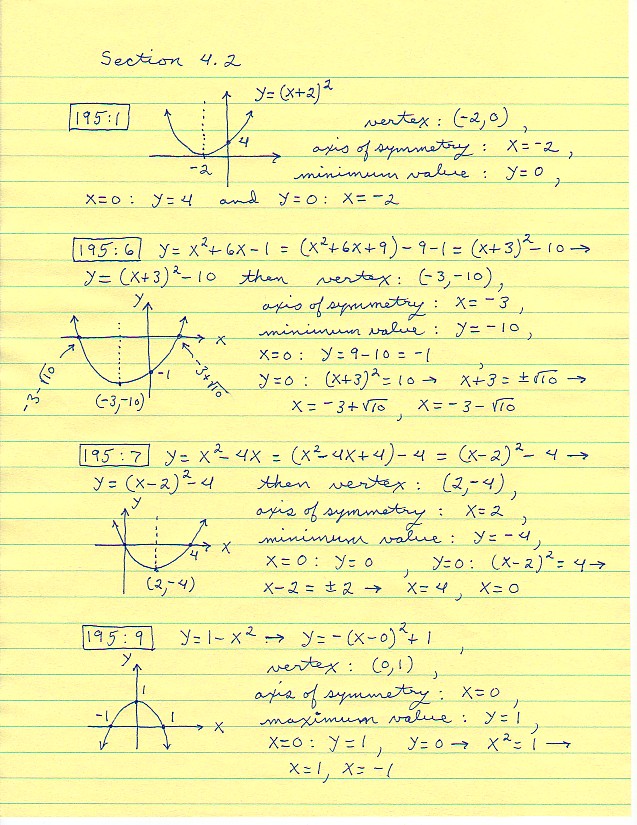 Section 4.2
y=(x+2)²
195:1
vertex: (-2,0),
4
axis of symmetry: x=-2,
-2
minimum value: y=0,
x=0: y=4 and y=0: x=-2
195:6 y=x²+6x-1=(x²+6x+9)-9-1=(x+3)²-10→
y=(x+3)²-10 then vertex: (-3,-10),
y
axis of symmetry: x=-3,
x
minimum value: y=-10,
x=0: y=9-10=-1,
-3-√10
-1
-3+√10
(-3,-10)
y=0: (x+3)²=10→ x+3=±√10→
x=-3+√10, x=-3-√10
195:7 y=x²-4x=(x²-4x+4)-4=(x-2)²-4→
y=(x-2)²-4 then vertex: (2,-4),
y
axis of symmetry: x=2,
4 x
minimum value: y=-4,
x=0: y=0, y=0: (x-2)²=4→
(2,-4)
x-2=±2→ x=4, x=0
195:9 y=1-x²→ y=-(x-0)²+1,
y
vertex: (0,1),
1
axis of symmetry: x=0,
-1 1 x
maximum value: y=1,
x=0: y=1, y=0→ x²=1→
x=1, x=-1